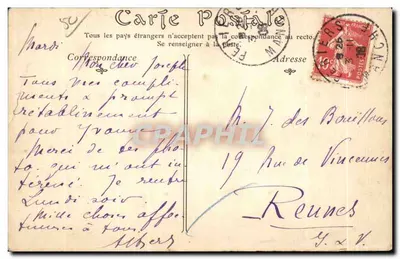 50
Carte Postale
Tous les pays étrangers n'acceptent pas la correspondance au recto.
Se renseigner à la poste
Correspondance
Adresse
Mardi
Mon cher Joseph
Tous mes compli-
ments & prompt
rétablissement
pour Yvonne
Merci de tes pho-
to. qui m'ont in-
téressé. Je rentre
Lundi soir.
Mille choses affec-
tueuses à tous
Albert
M. J. des Bouillons
19 Rue de Vincennes
Rennes
I & V.
DELCAMPHIL